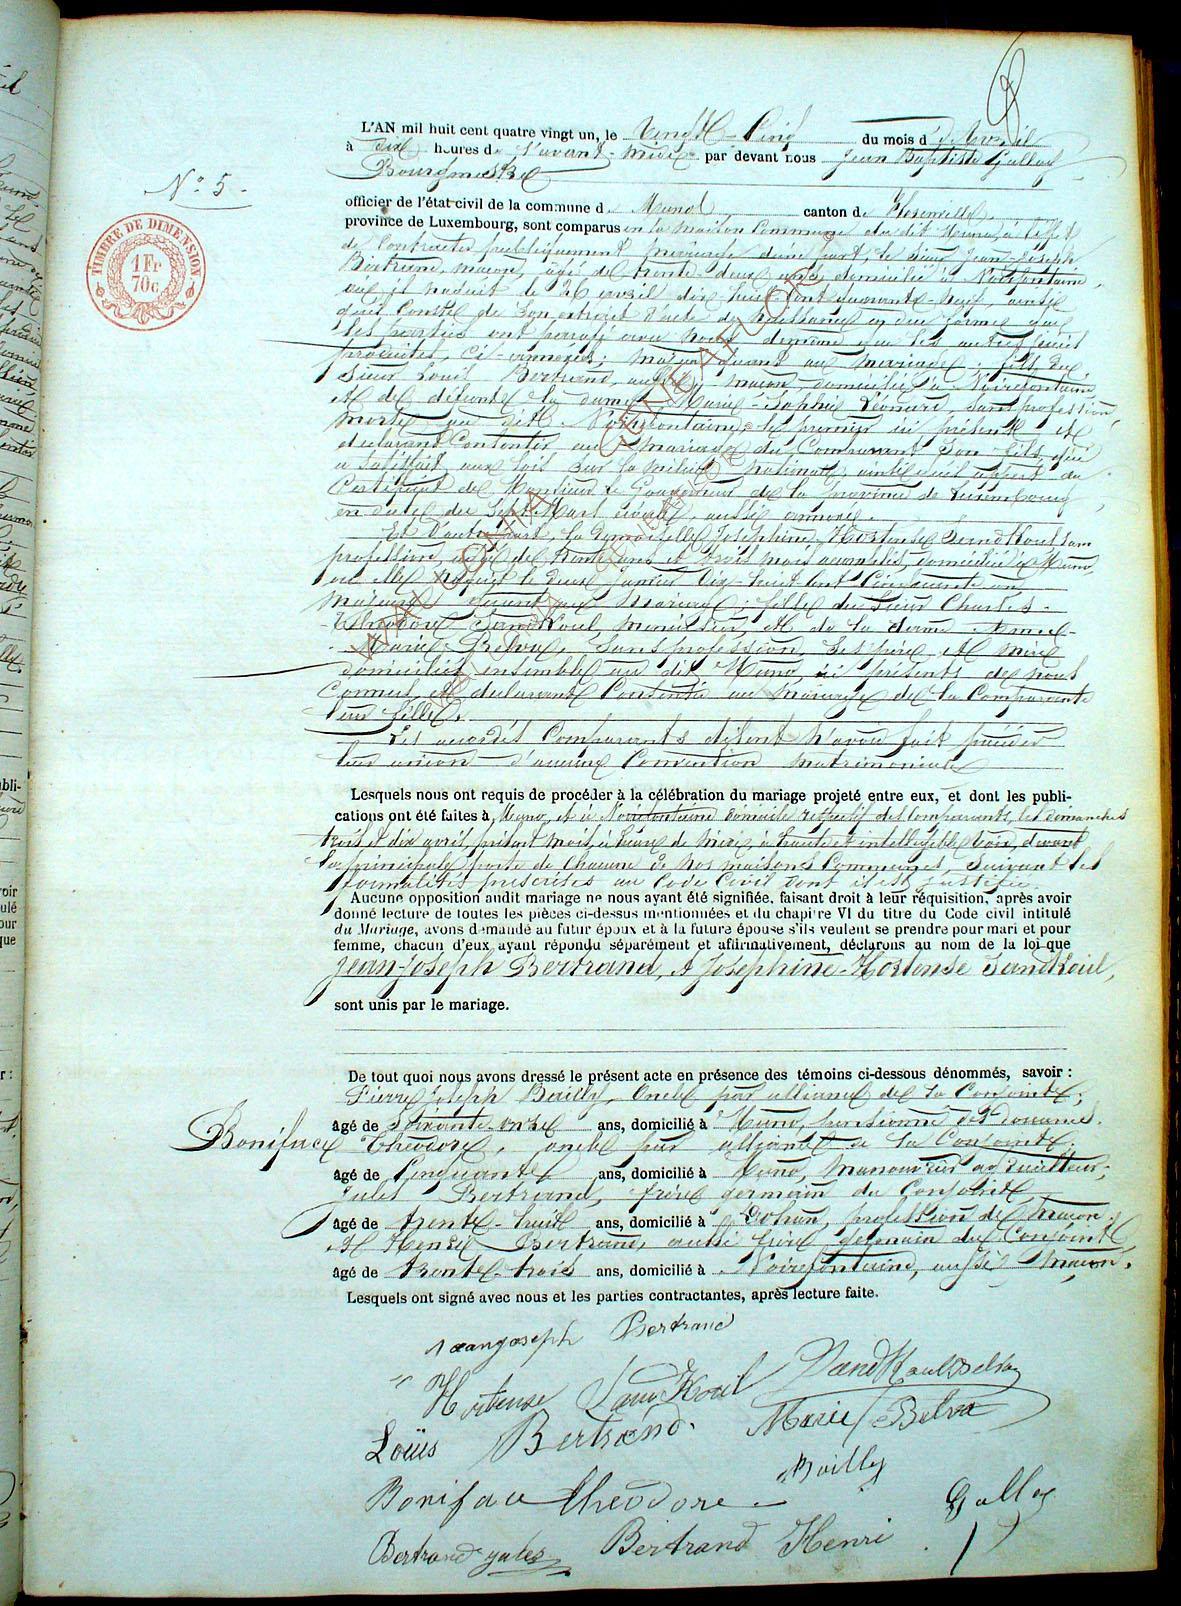 N° 5.
TIMBRE DE DIMENSION
1 Fr
70c
L'AN mil huit cent quatre vingt un, le Vingt-Cinq du mois d'Avril
à dix heures de l'avant-midi par devant nous Jean Baptiste Gallay
Bourgmestre
officier de l'état-civil de la commune de Muno canton de Florenville
province de Luxembourg, sont comparus en la maison Commune du dit Muno, à l'effet
de Contracter publiquement mariage d'une part, le sieur Jean-Joseph
Bertrand, maçon, âgé de trente deux ans, domicilié à Noirefontaine,
où il naquit le 26 avril dix huit cent quarante-neuf, ainsi
qu'il Conste de son extrait d'acte de Naissance en due forme que
les parties ont paraffé avec nous, de même que les autres pièces
produites, ci-annexées; majeur quant au mariage; fils du
Sieur Louis Bertrand, aussi maçon domicilié à Noirefontaine,
et de défunte la dame Marie-Sophie Léonard, sans profession,
morte au dit Noirefontaine; le premier ici présent et
déclarant Consentir au mariage du Comparant Son fils, qui
a satisfait aux lois sur la milice nationale, ainsi qu'il appert du
Certificat de Monsieur le Gouverneur de la province de Luxembourg
en date du Sept Mars écoulé aussi annexé.
Et d'autre part, la Demoiselle Joséphine-Hortense SandKoul sans
profession, âgée de trente ans et trois mois accomplis, domiciliée à Muno,
où elle naquit le deux janvier dix-huit cent Cinquante un
majeure quant au mariage; fille du Sieur Charles-
Théodore SandKoul menuisier, et de la dame
Marie Belva, Sans profession, Ses père et mère
domiciliés ensemble au dit Muno, ici présents de nous
Connus, et déclarant Consentir au mariage de la Comparante
leur fille.
Les accordés Comparants disent n'avoir fait précéder
leur union d'aucune Convention matrimoniale
Lesquels nous ont requis de procéder à la célébration du mariage projeté entre eux, et dont les publi-
cations ont été faites à Muno, et à Noirefontaine domicile respectif des Comparants, les dimanches
trois et dix avril, présent mois, à heure de midi, à haute et intelligible voix, devant
la principale porte de Chacune de nos maisons Communes, Suivant les
formalités prescrites au Code Civil dont il est justifié.
Aucune opposition audit mariage ne nous ayant été signifiée, faisant droit à leur réquisition, après avoir
donné lecture de toutes les pièces ci-dessus mentionnées et du chapitre VI du titre du Code civil intitulé
du Mariage, avons demandé au futur époux et à la future épouse s'ils veulent se prendre pour mari et pour
femme, chacun d'eux ayant répondu séparément et affirmativement, déclarons au nom de la loi que
Jean-Joseph Bertrand, et Joséphine-Hortense SandKoul,
sont unis par le mariage.
De tout quoi nous avons dressé le présent acte en présence des témoins ci-dessous dénommés, savoir :
Pierre Joseph Bailly, Oncle par alliance de la Conjointe;
âgé de Soixante-onze ans, domicilié à Muno, pensionné des Douanes.
Boniface Théodore, oncle par alliance de la Conjointe.
âgé de Cinquante ans, domicilié à Muno, manouvrier agriculteur;
Jules Bertrand, frère germain du Conjoint
âgé de trente-huit ans, domicilié à Dohan, profession de maçon.
Et Henri Bertrand, aussi frère germain du Conjoint,
âgé de trente-trois ans, domicilié à Noirefontaine, aussi maçon.
Lesquels ont signé avec nous et les parties contractantes, après lecture faite.
Jeanjoseph Bertrand
Hortense SandKoul SandKoulBelva
Louis Bertrand. Marie Belva
Boniface théodore Bailly
Gallay
Bertrand jules Bertrand Henri